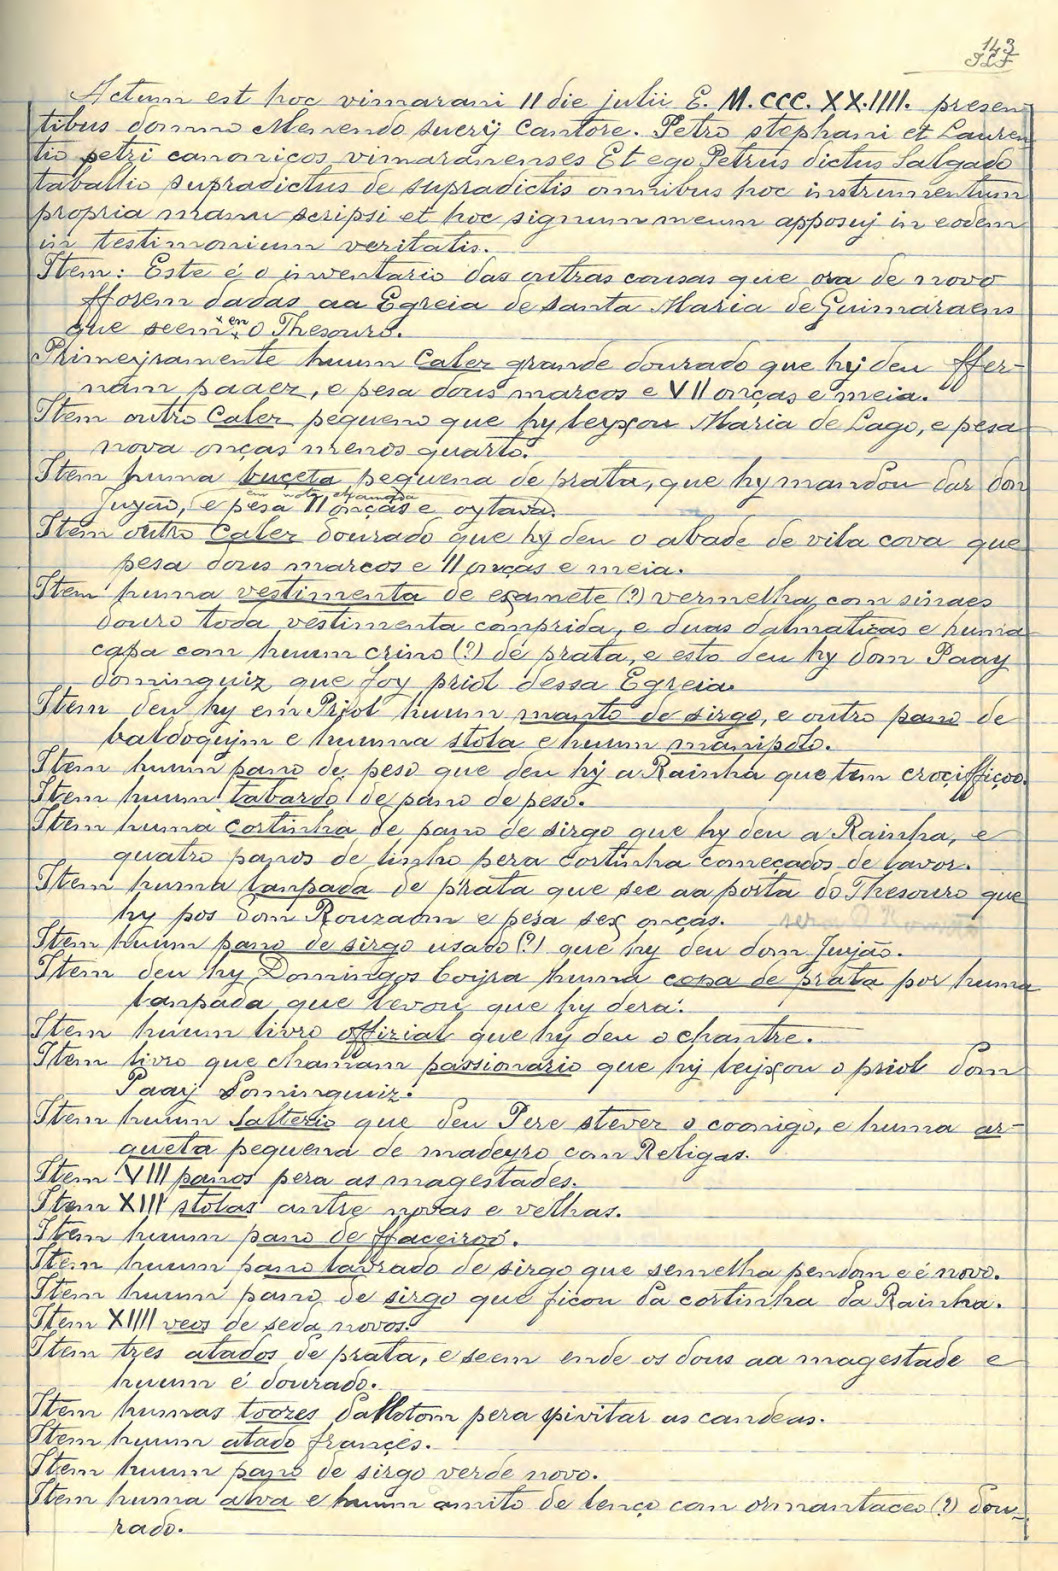 143
Actum est hoc vimarani II die julii E. M.CCC.XX.IIII. presen
tibus domno Menendo suerij Cantore. Petro stephani et Lauren
tio petri canonicos vimaranenses Et ego Petrus dictus Salgado
tabellio supradictus de supradictis omnibus hoc instrumentum
propria manu scripsi et hoc signum meum apposuj in eodem
in testimonium veritatis.
Item: Este é o inventario das outras cousas que ora de novo
fforem dadas aa Egreia de santa Maria de Guimaraens
que seem en o Thesouro.
Primeyramente huum Calez grande dourado que hy deu ffer-
nam paaez, e pesa dous marcos e VII onças e meia.
Item outro Calez pequeno que hy leyxou Maria de Lago, e pesa
nova onças menos quarto.
Item huma buçeta pequena de prata, que hy mandou dar don
em nota chamada
Juyão, e pesa II onças e oytava.
Item outro Calez dourado que hy deu o abade de vila cova que
pesa dous marcos e II onças e meia.
Item huma vestimenta de examete (?) vermelha com sinaes
douro toda vestimenta comprida, e duas dalmaticas e huma
capa com huum crino (?) de prata, e esto deu hy dom Paay
dominguiz que foy priol dessa Egreia.
Item deu hy em Priol huum manto de sirgo, e outro pano de
baldoqujm e huuma stola e huum manipolo.
Item huum pano de peso que deu hy a Rainha que tem croçiffiços.
Item huum tabardo de pano de peso.
Item huma cortinha de pano de sirgo que hy deu a Rainha, e
quatro panos de linho pera cortinha começados de lavor.
Item huma lanpada de prata que see aa porta do Thesouro que
hy pos dom Rouzaom e pesa sex onças.
Item huum pano de sirgo usado (?) que hy deu dom Juyão.
Item deu hy Domingos Coyra huma copa de prata por huma
lanpada que levou que hy dera.
Item huum livro offizial que hy deu o chantre.
Item livro que chamam passionario que hy leyxou o priol Dom
Paay Dominguiz.
Item huum Salterio que deu Pere stevez o coonigo, e huma ar-
queta pequena de madeyro com Religas.
Item VIII panos pera as magestades.
Item XIII stolas antre novas e velhas.
Item huum pano de ffaceiroó.
Item huum pano lavrado de sirgo que semelha pendom e é novo.
Item huum pano de sirgo que ficou da cortinha da Rainha.
Item XIIII veos de seda novos.
Item tres atados de prata, e seem ende os dous aa magestade e
huum é dourado.
Item humas toozes dallotom pera spivitar as candeas.
Item huum atado françês.
Item huum pano de sirgo verde novo.
Item huma alva e huum amito de lenço com ormantaceo (?) dou-
rado.